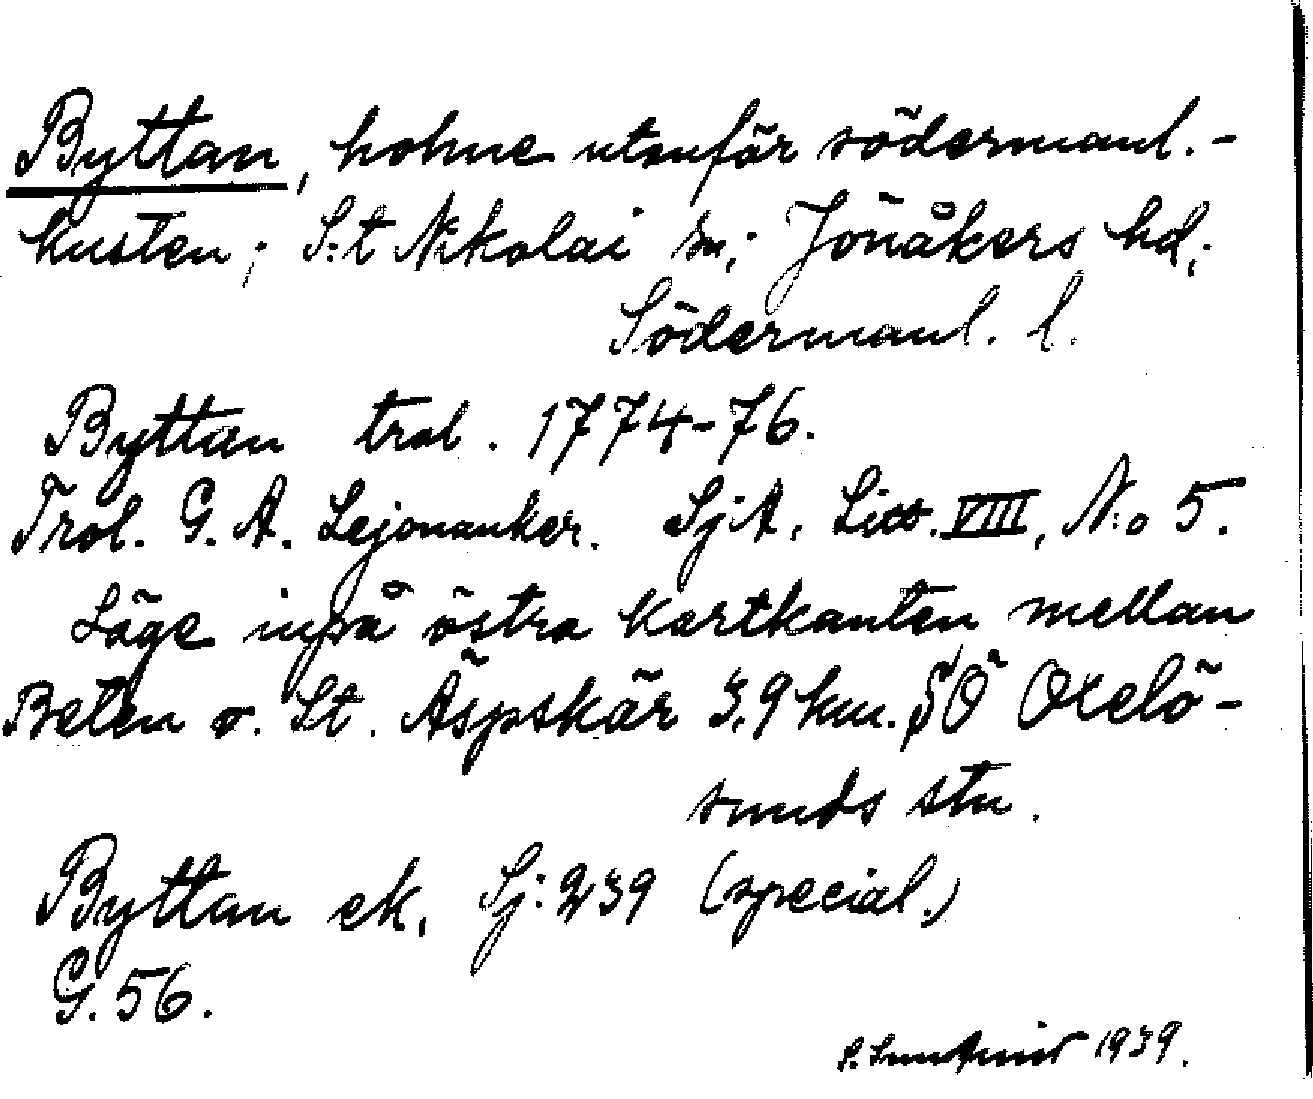 Byttan, holme utanför södermanl.-
kusten; S:t Nikolai sn; Jönåkers hd;
Södermanl. l.
Byttan trol. 1774-76.
Trol. G. A. Lejonanker. SjA. Litt. VIII, N:o 5.
Läge inpå östra kartkanten mellan
Beten o. St. Äspskär 3,9 km. SÖ Oxelö-
sunds stn.
Byttan ek. Sj: 239 (special.)
G. 56.
1939.